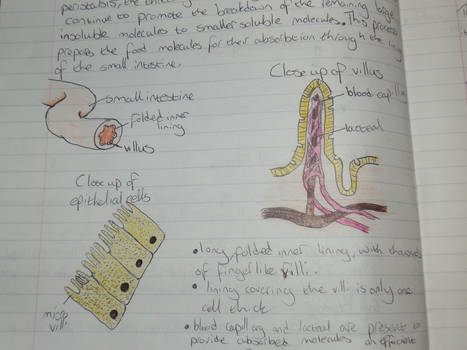 peristalsis, the
continue to promote the breakdown of the remaining large
insoluble molecules to smaller soluble molecules. This process
prepares the food molecules for their absorption through the
of the small intestine.
Close up of villus
small intestine
folded inner
lining
villus
blood capillary
lacteal
Close up of
epithelial cells
micro
villi
• long, folded inner lining, with thousands
of finger like villi.
• lining covering the villi is only one
cell thick
• blood capillary and lacteal are present to
provide absorbed molecules an effective